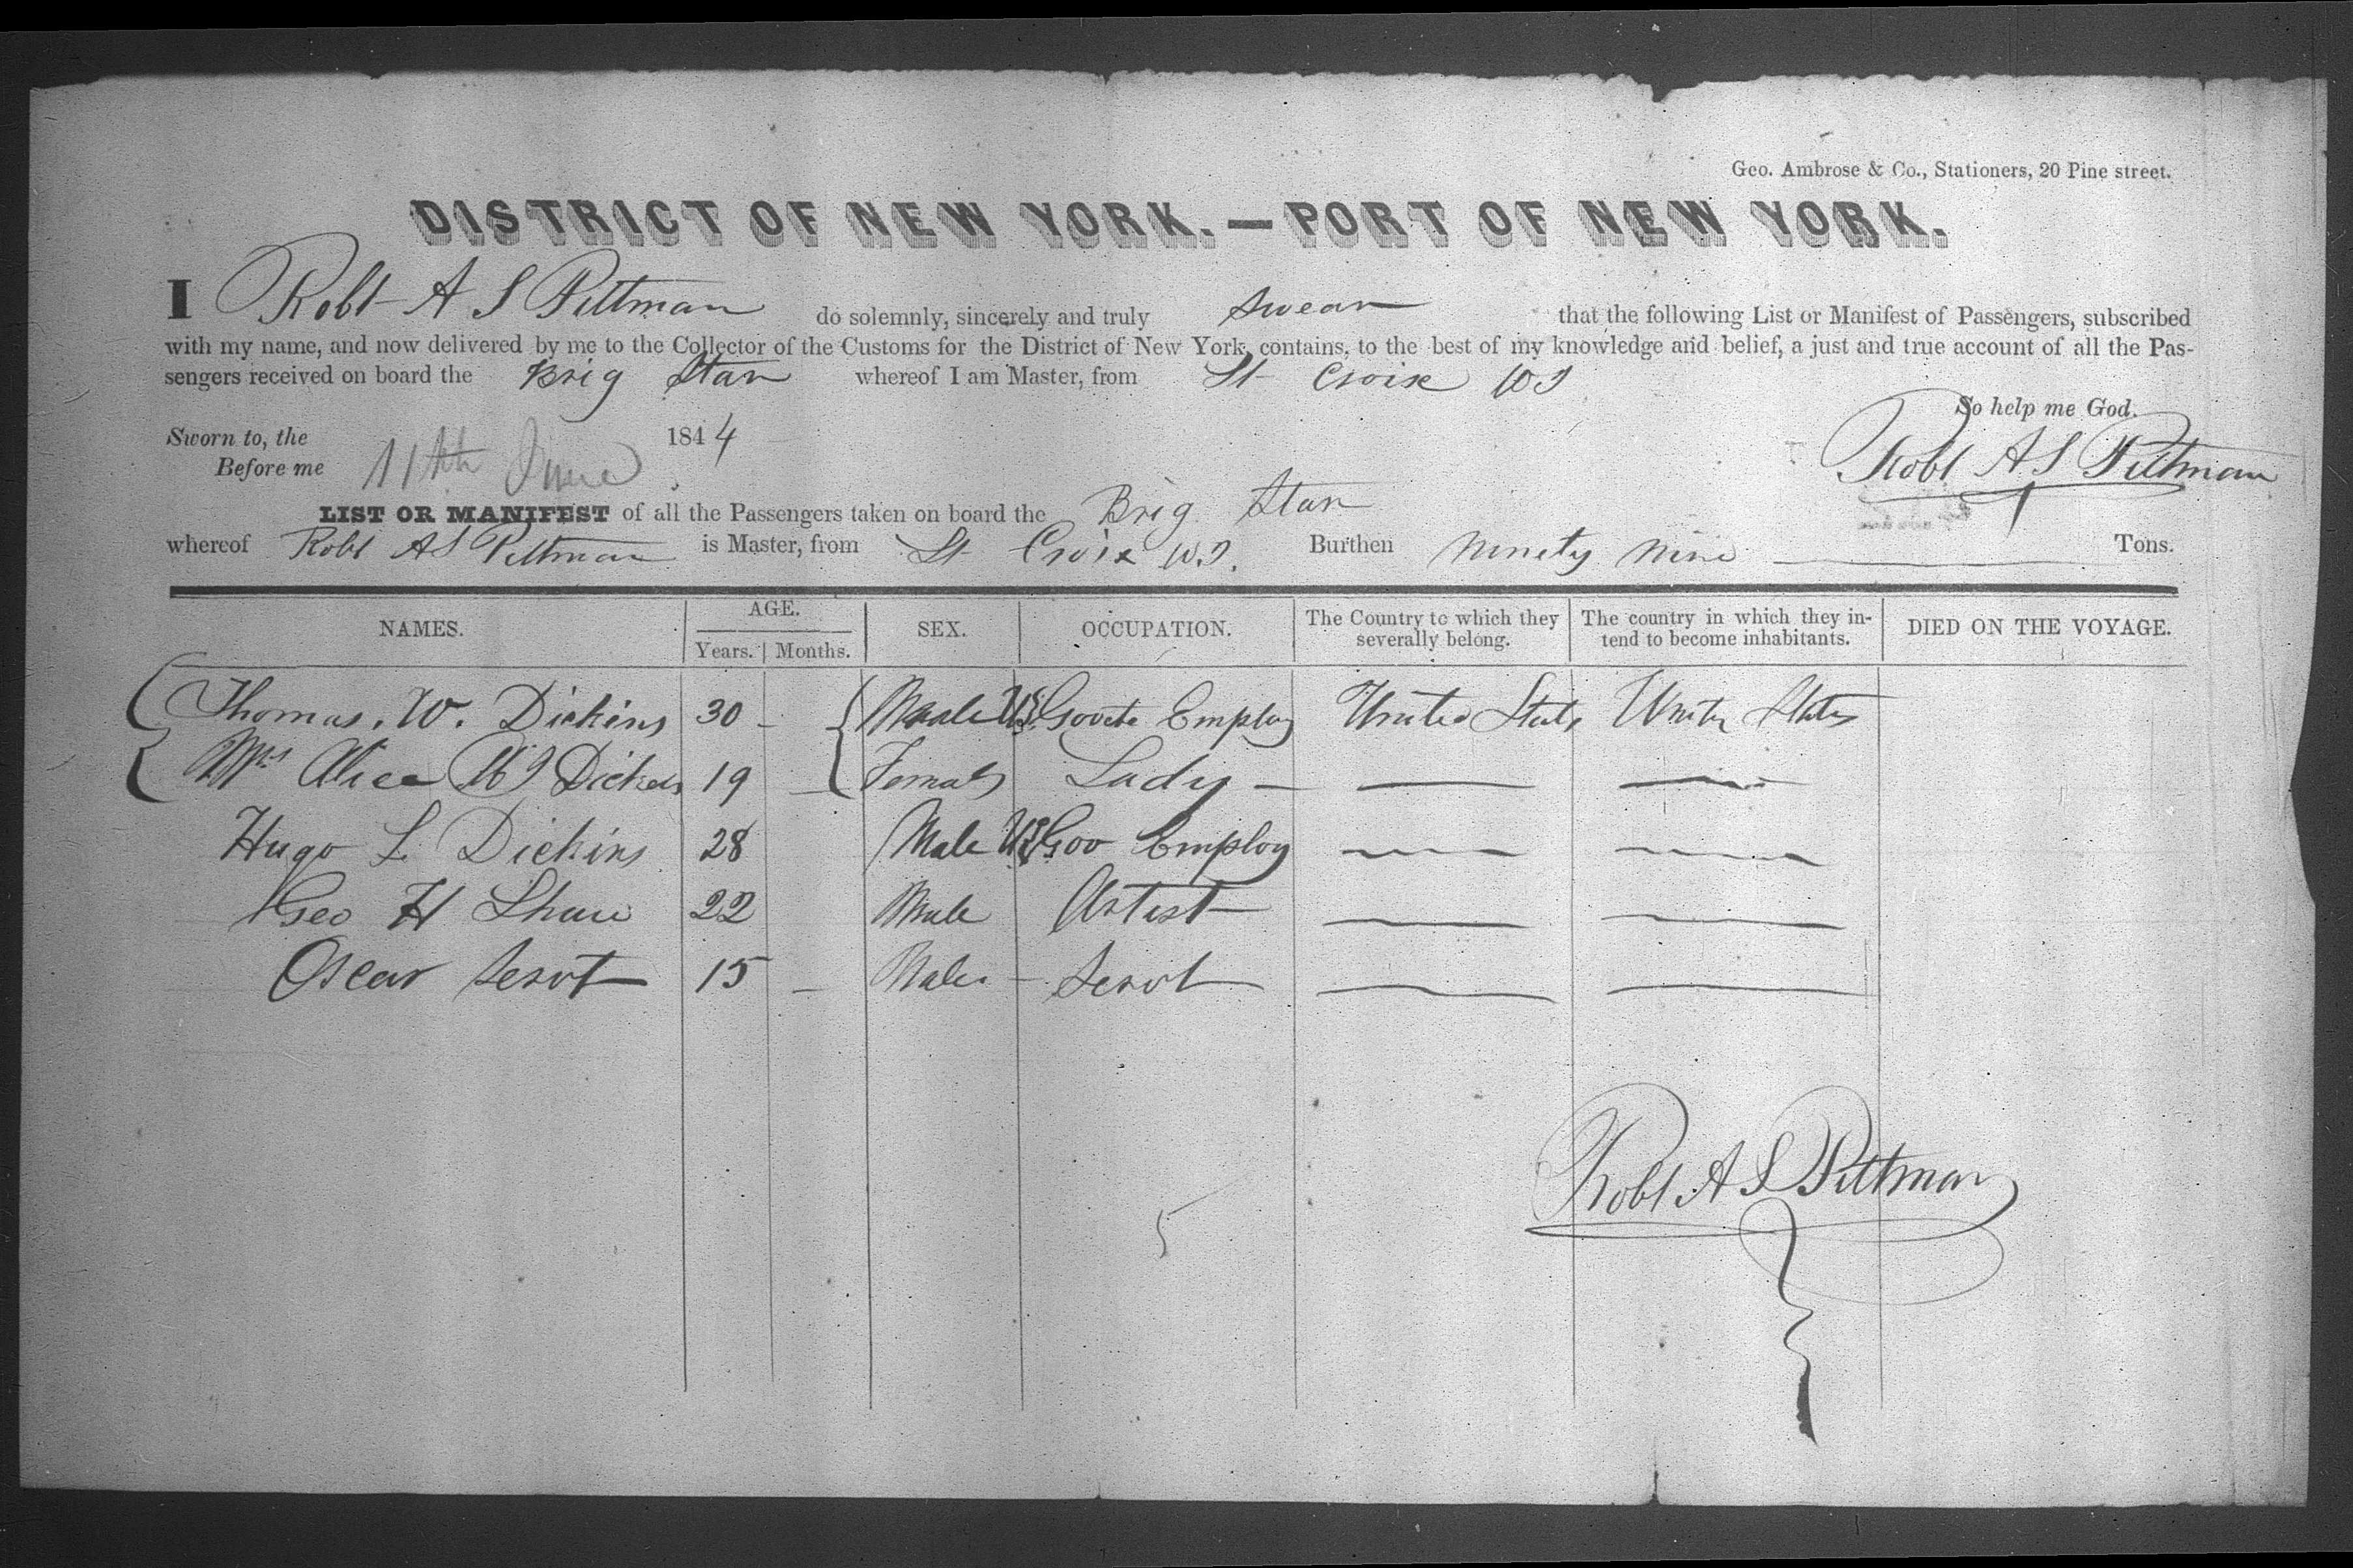 Geo. Ambrose & Co., Stationers, 20 Pine street.
DISTRICT OF NEW YORK.—PORT OF NEW YORK.
I Robt A S Pittman do solemnly, sincerely and truly swear that the following List or Manifest of Passengers, subscribed
with my name, and now delivered by me to the Collector of the Customs for the District of New York, contains, to the best of my knowledge and belief, a just and true account of all the Pas-
sengers received on board the Brig Star whereof I am Master, from St Croix W I
So help me God.
Sworn to, the 11th June 1844
Before me
Robt A S Pittman
LIST OR MANIFEST of all the Passengers taken on board the Brig Star
whereof Robt A S Pittman is Master, from St Croix W.I. Burthen Ninety Nine Tons.
NAMES. AGE. Years. Months. SEX. OCCUPATION. The Country to which they severally belong. The country in which they in-tend to become inhabitants. DIED ON THE VOYAGE.
Thomas. W. Dickins 30 - Male U.S. Govt Employ United States United States
Mrs Alice Dickens 19 - Female Lady —
Hugo L. Dickins 28 Male U.S. Gov Employ
Geo H Shaw 22 Male Artist
Oscar Servt 15 - Male - Servt
5
Robt A S Pittman